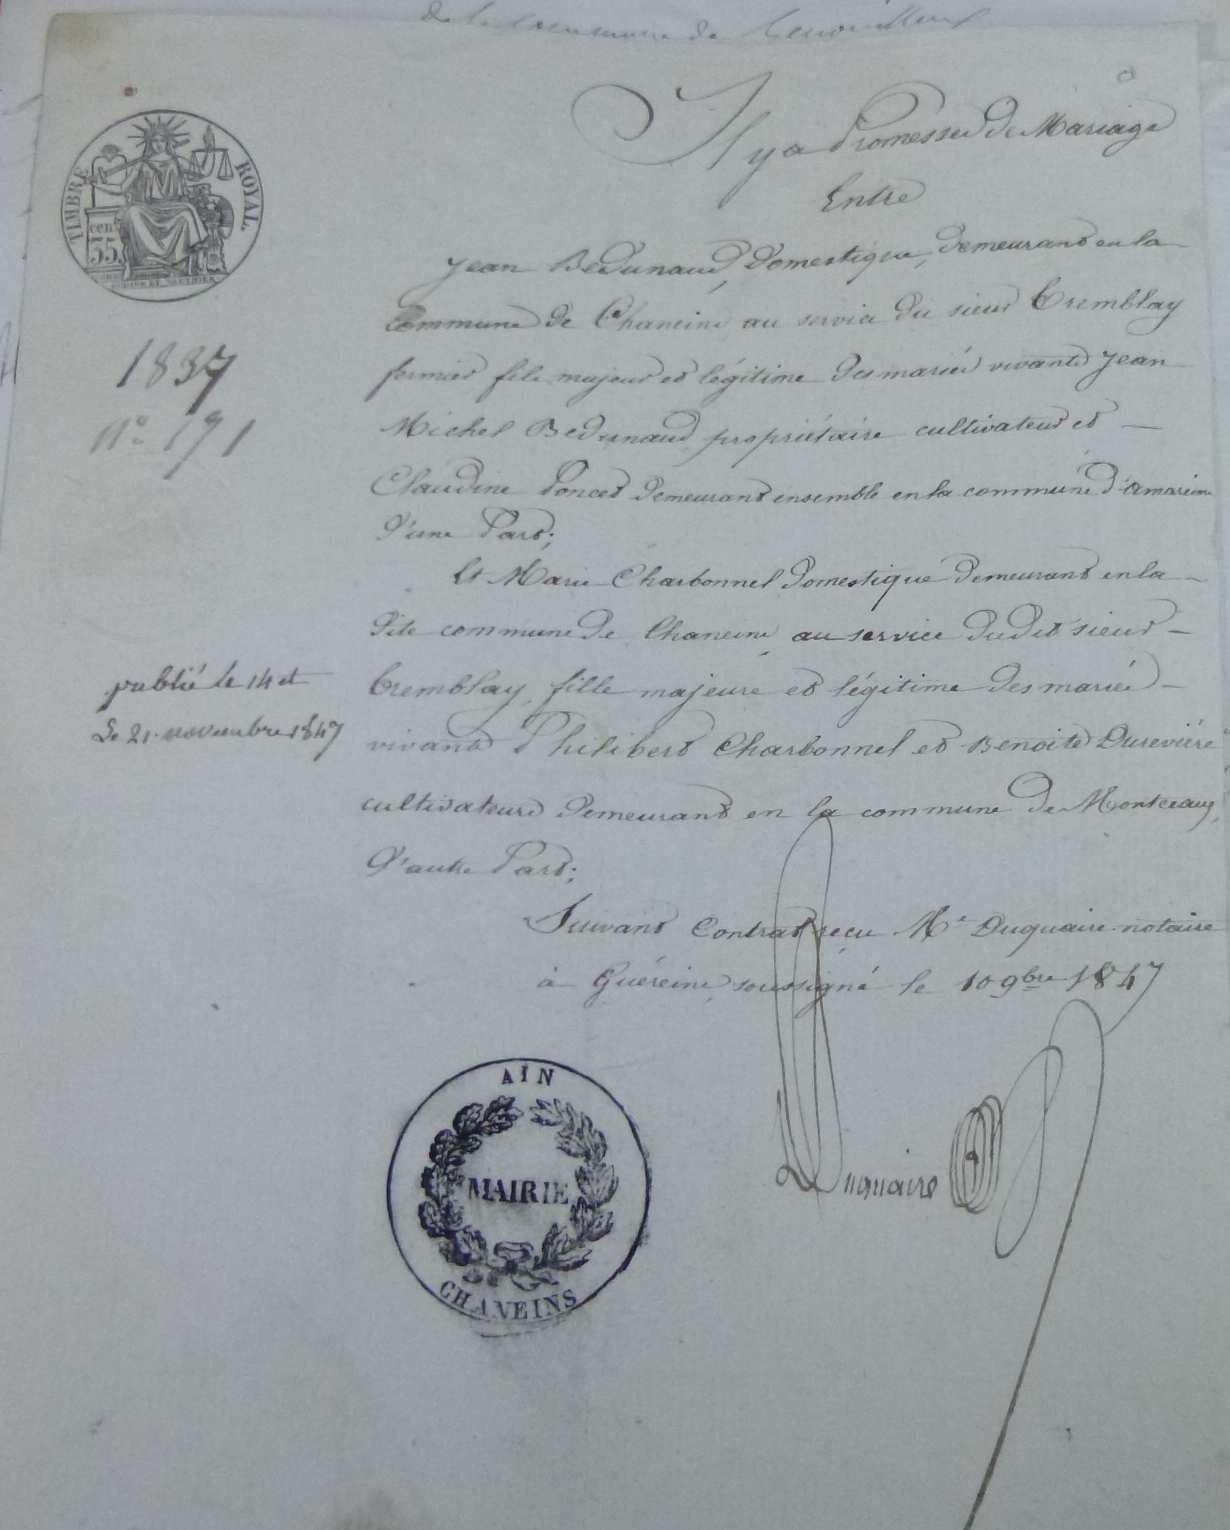 de la commune de
Il y a Promesse de Mariage
Entre
TIMBRE ROYAL
cen
35
Jean Bedunaud, Domestique, Demeurant en la
Commune de Chaneins au service du sieur Tremblay
1837
fermier fils majeur et légitime des mariés vivants Jean
n° 171
Michel Bedunaud propriétaire cultivateur et —
Claudine Poncet Demeurant ensemble en la commune d'Amareins
D'une Part;
Et Marie Charbonnel Domestique Demeurant en la —
dite commune de Chaneins, au service dudit sieur —
publié le 14 et
Tremblay, fille majeure et légitime des mariés —
le 21 novembre 1847
vivants Philibert Charbonnel et Benoite
cultivateurs Demeurant en la commune de Montceaux,
D'autre Part;
Suivant Contrat reçu Me Duquaire notaire
à Guéreins, soussigné le 10 9bre 1847
Duquaire
AIN
MAIRIE
CHANEINS